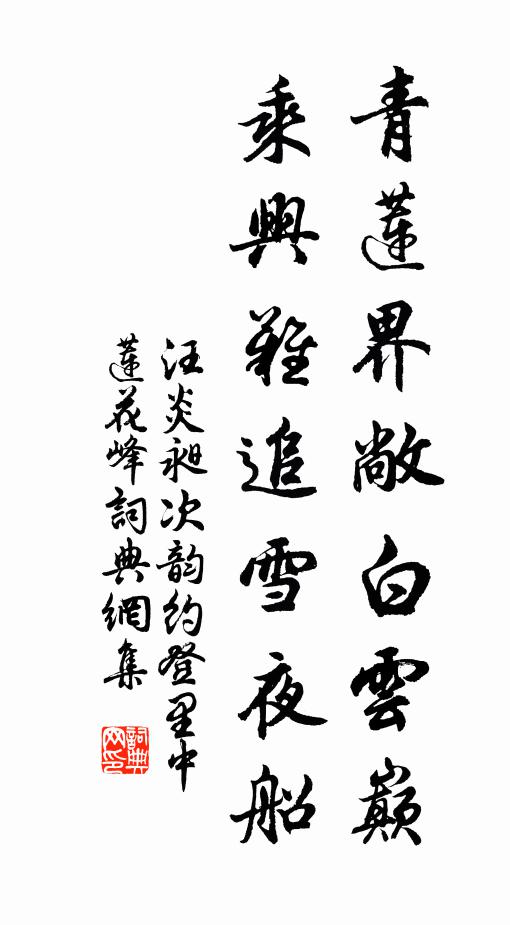 青蓮界敞白雲巔
乘興難追雪夜船
汪炎昶次韵約登里中
蓮花峰詞典網集
詞典网印